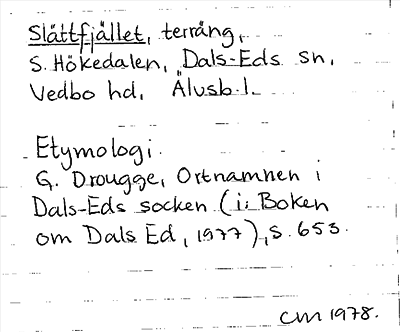 Slättfjället, terräng,
S. Hökedalen, Dals-Eds sn,
Vedbo hd, Älvsb.l.
Etymologi.
G. Drougge, Ortnamnen i
Dals-Eds socken (i: Boken
om Dals Ed, 1977), s. 653.
CM 1978.